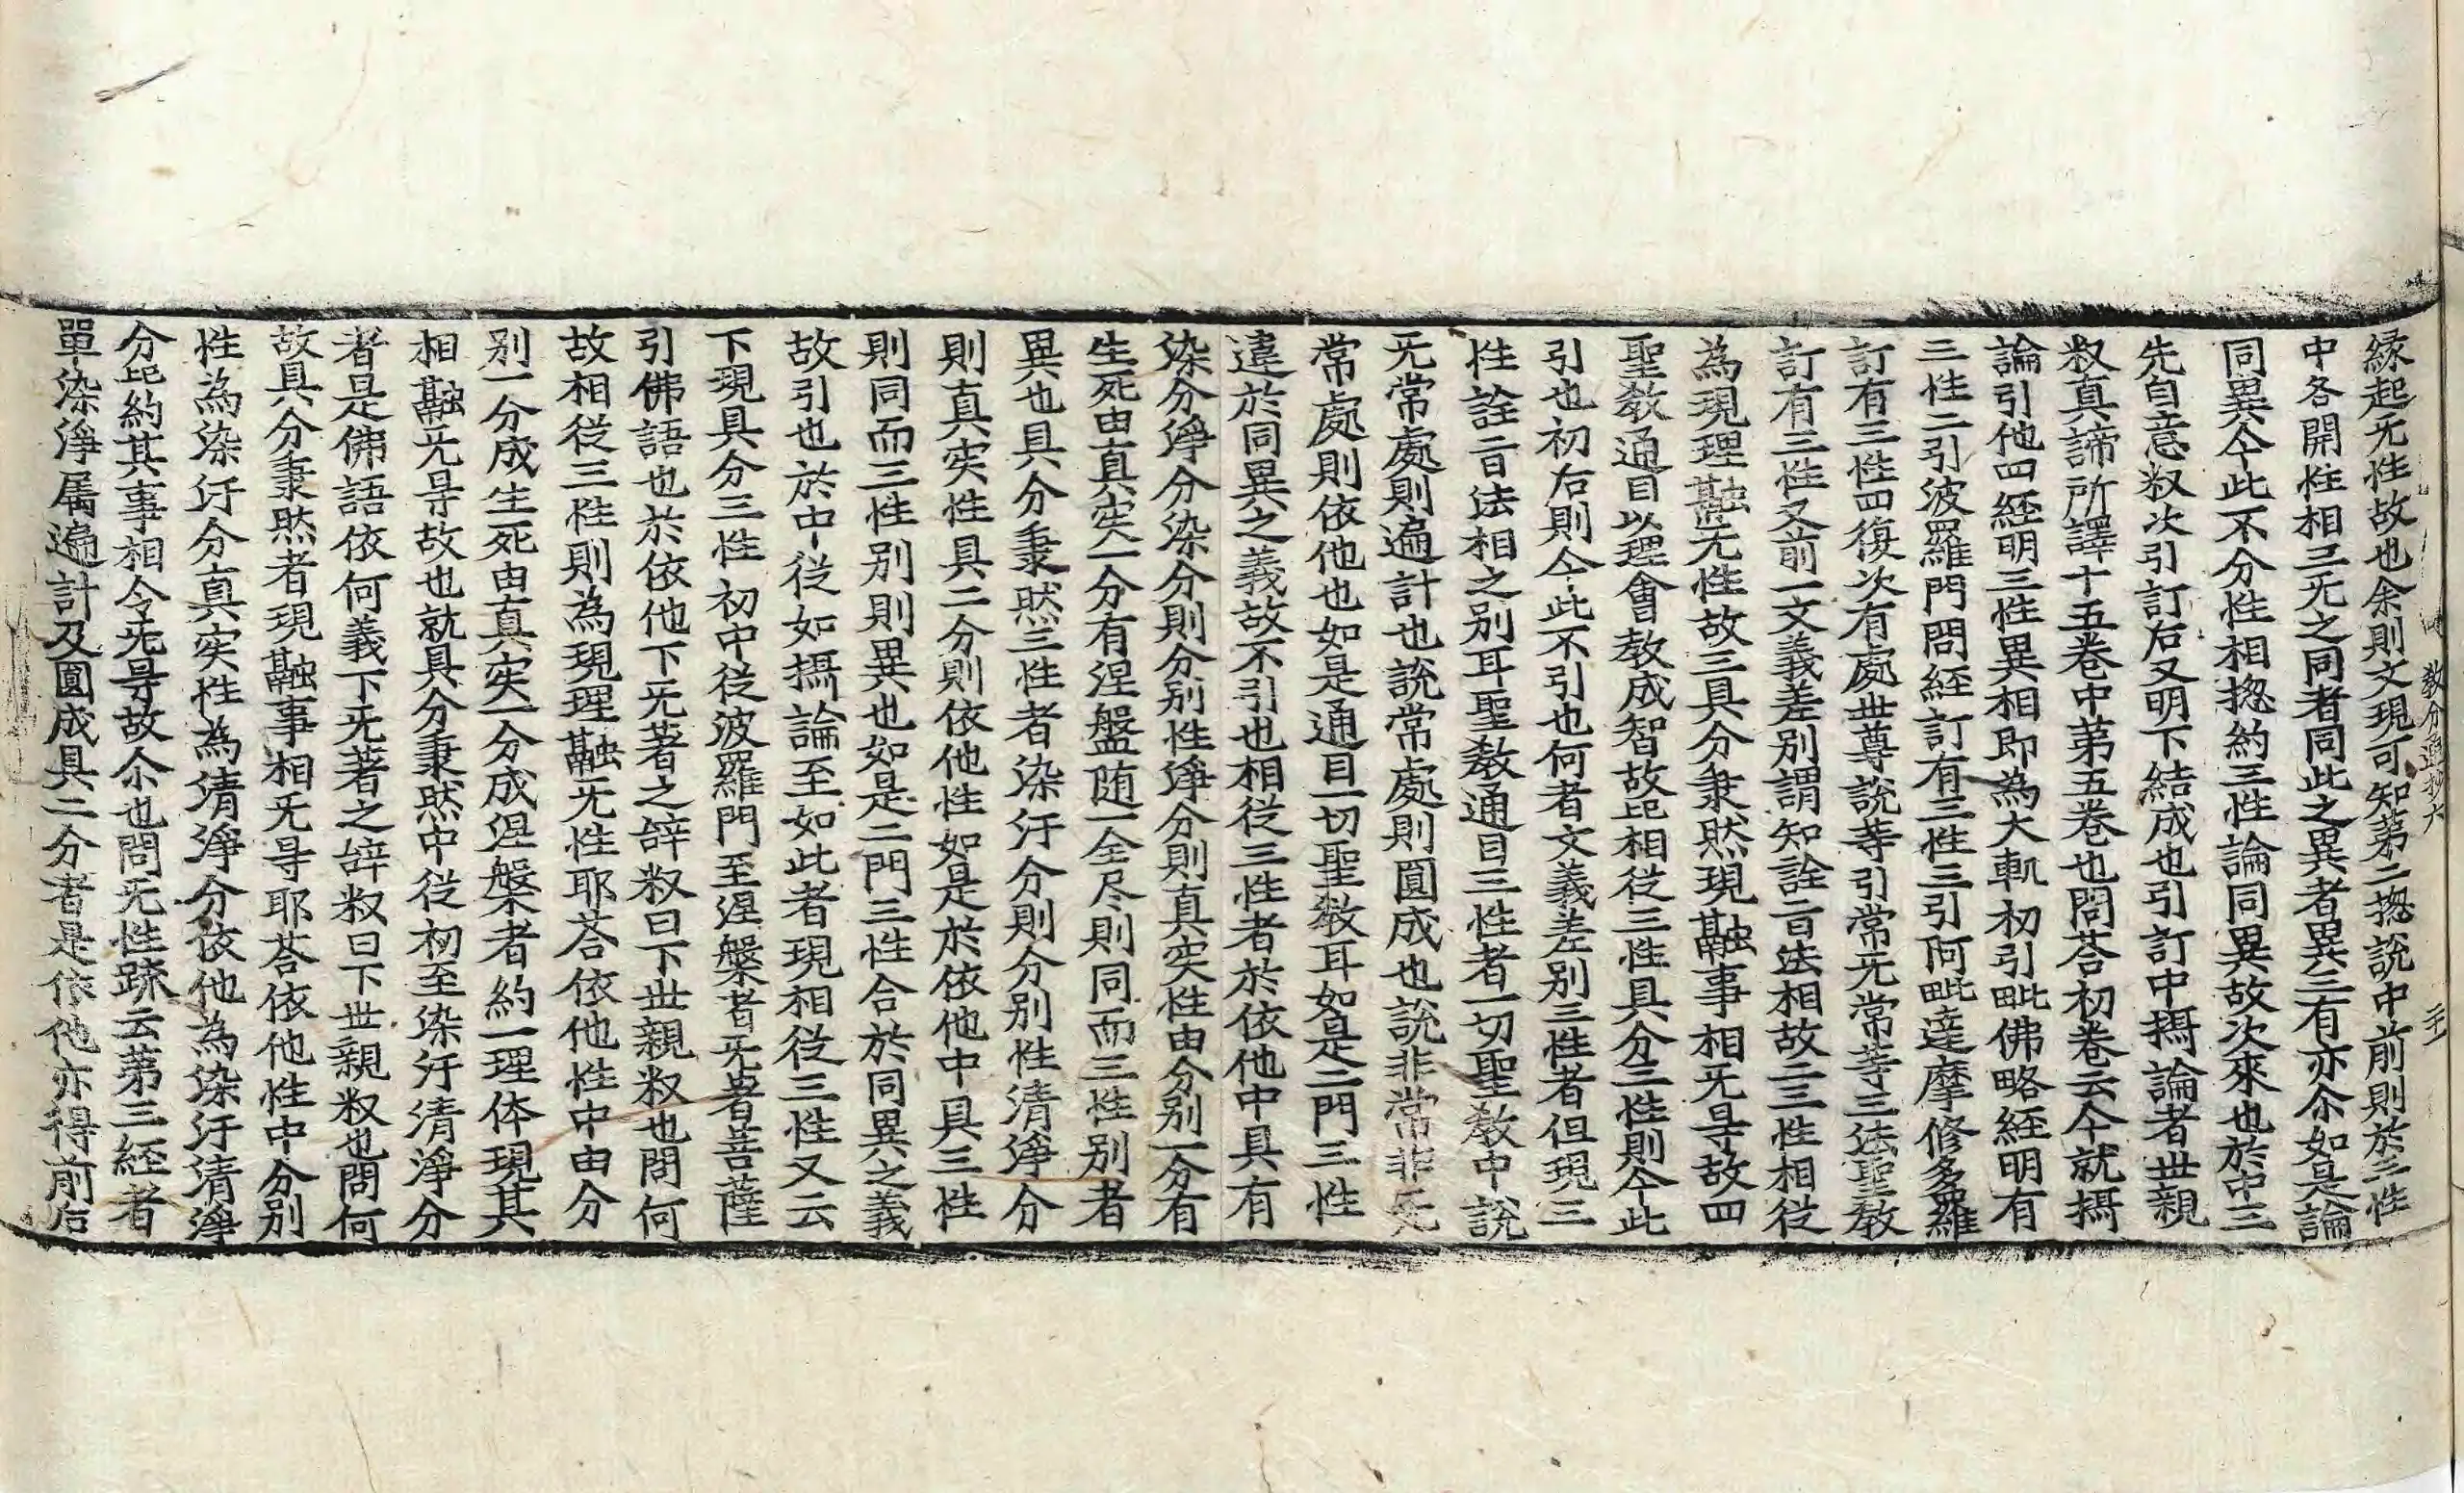 緣起无性故也余則文現可知第二揔說中前則於三性
中各開性相三无之同者同此之異者異三有亦尒如是論
同異今此不分性相揔約三性論同異故次來也於中三
先自意釈次引訂后又明下結成也引訂中攝論者世親
釈真諦所譯十五卷中第五卷也問荅初卷云今就攝
論引他四経明三性異相即為大軌初引毗佛略経明有
三性二引波羅門問経訂有三性三引阿毗達摩修多羅
訂有三性四復次有處世尊說䓁引常无常䓁三法聖教
訂有三性又前一文義差別謂知詮二百法相故二三性相從
為現理融无性故三具分秉然現融事相无导故四
聖教通目以理會教成智故比相從三性具分三性則今此
引也初右則今此不引也何者文義差別三性者但現三
性詮二百法相之別耳聖教通目三性者一切聖教中說
无常處則遍計也說常處則圓成也說非常非无
常處則依他也如是通目一切聖教耳如是二門三性
違於同異之義故不引也相從三性者於依他中具有
染分淨分染分則分別性淨分則真实性由分別一分有
生死由真实一分有涅盤随一全尽則同而三性別者
異也具分秉然三性者染汙分則分別性清淨分
則真实性具二分則依他性如是於依他中具三性
則同而三性別則異也如是二門三性合於同異之義
故引也於中從如攝論至如此者現相從三性又云
下現具分三性初中從波羅門至涅槃者无著菩薩
引佛語也於依他下无著之辞釈曰下世親釈也問何
故相從三性則為現理融无性耶荅依他性中由分
別一分成生死由真実一分成涅槃者約一理体現其
相融无导故也就具分秉然中從初至染汙清淨分
者是佛語依何義下无著之辞釈曰下世親釈也問何
故具分秉然者現融事相无导耶荅依他性中分別
性為染汙分真实性為清淨分依他為染汙清淨
分比約其事相令无导故尒也問无性䟽云第三経者
單染淨属遍計及圓成具二分者是依他亦得前后
教分通抄六